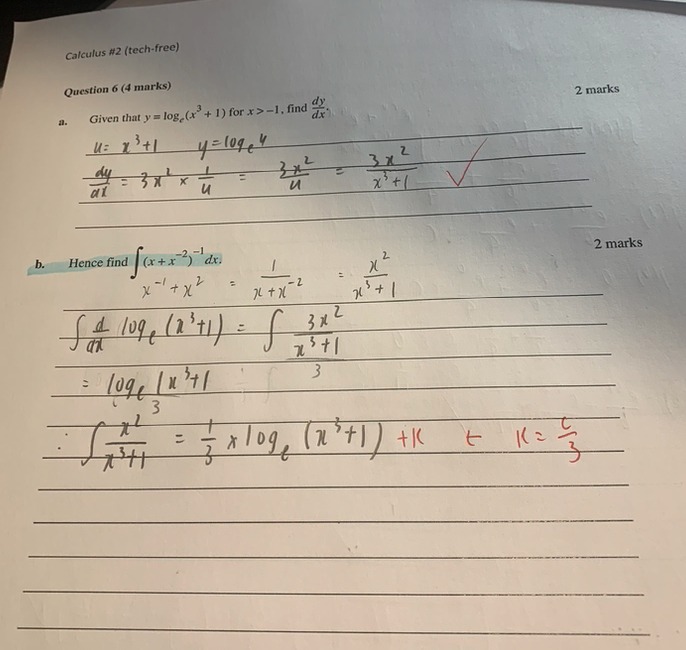 Calculus #2 (tech-free)
Question 6 (4 marks)
a. Given that y = logₑ(x³ + 1) for x > −1, find dy/dx. 2 marks
u = x³+1 y = logₑ u
dy/dx = 3x² × 1/u = 3x²/u = 3x²/(x³+1) ✓
b. Hence find ∫(x + x⁻²)⁻¹ dx. 2 marks
x⁻¹ + x² = 1/(x + x⁻²) = x²/(x³+1)
∫ d/dx logₑ (x³+1) = ∫ 3x²/(x³+1)
3
= logₑ (x³+1
3
∴ ∫ x²/(x³+1) = 1/3 × logₑ (x³+1) +K t K = c/3